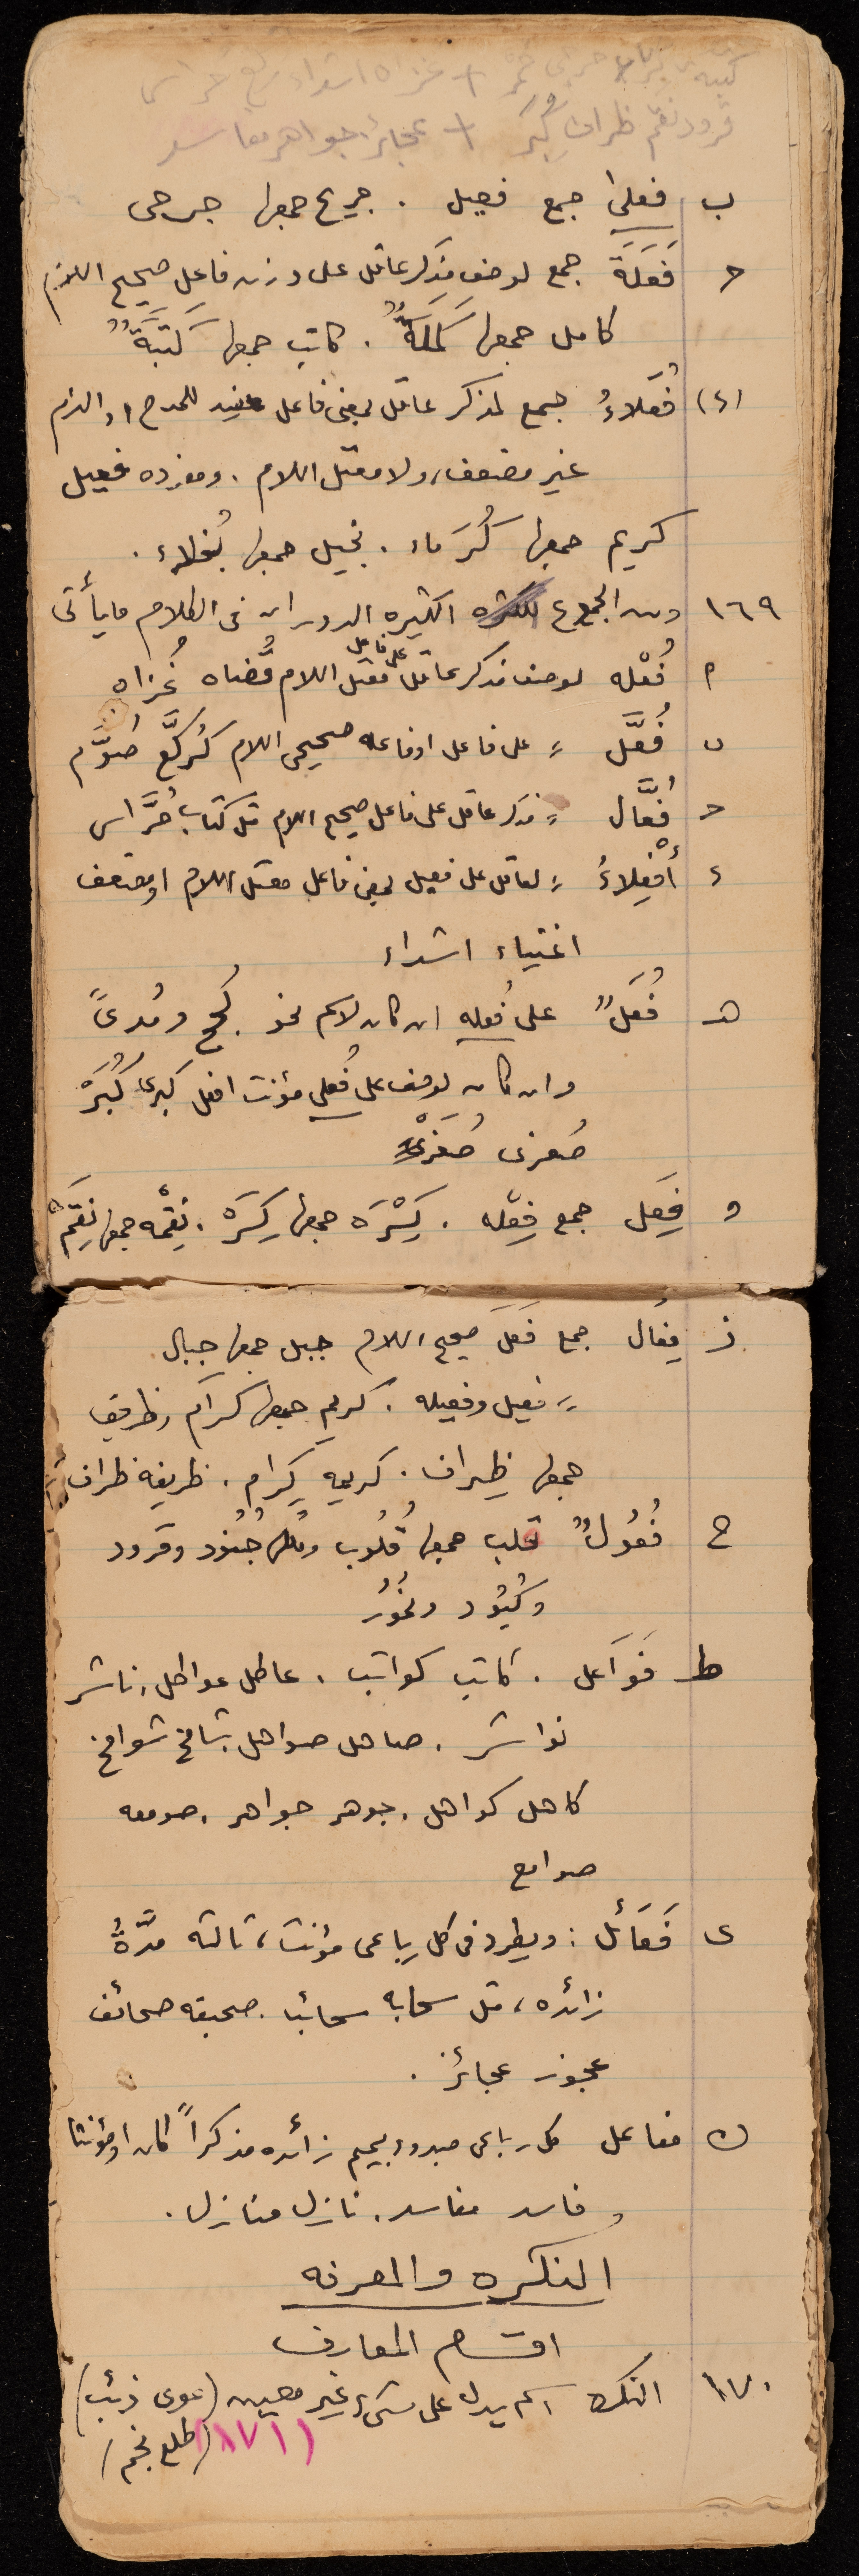 قرود نقم ظراف كُبَر + عجائز جواهر مفاسد
ب فعلى جمع فعيل . جريح جمعها جرحى
ح فَعَلَة جمع لوصف مذكر عاقل على وزن فاعل صحيح اللام
كامل جمعها كَمَلَةٌ . كاتب جمعها كَتَبَةٌ
(٤) فُعَلاءُ جمع لمذكر عاقل بمعنى فاعل للمدح او الذم
غير مضعف، ولا معتل اللام . ومفرده فعيل
كريم جمعها كُرَماء . بخيل جمعها بُخلاء .
١٦٩ ومن الجموع الكثيره الدوران فى الكلام ما يأتى
م فُعْله لوصف مذكر عاقل على فاعل معتل اللام قُضاه غُزاه
ب فُعَّل = على فاعل او فاعله صحيحى اللام كرُكَّع صُوَّم
ح فُعَّال = مذكر عاقل على فاعل صحيح اللام مثل كتاب حُرَّاس
ء أفْعِلاءُ = لعاقل على فعيل بمعنى فاعل معتل اللام او مضعف
اغنياء اشداء
هـ فُعَلٌ على فُعله ان كان لاسم نحو ومُدىً
وان كان لوصف على فُعلى مؤنث افعل كبرى كُبَرْ
صُغرى صُغَرْ
و فِعَل جمع فِعْله . كِسْرَه جمعها كِسَرَ . نِقْمه جمعها نِقَمْ
ز فِعَال جمع فَعَلَ صحيح اللام جبل جمعها جبال
= فعيل وفعيله . كريم جمعها كرام ، ظريف
جمعها ظِراف . كريمه كِرام . ظريفه ظراف
ح فُعُولٌ قلب جمعها قُلُوب جُنُود وقرود
وكُبُود ونُمُر
ط فَوَاعل . كاتب كواتب . عاطل عواطل ، ناشر
نواشر . صاهل صواهل شامخ شوامخ
كاهل كواهل . جوهر جواهر . صومعه
صوامع
ى فَعَائل : ويطرد فى كل رباعى مؤنث ، ثالثه مدَّةُ
زائده ، مثل سحابه سحائب . صحيفه صحائف
عجوز عجائز .
ك مفاعل كل رباعى مبدوء بميم زائده مذكراً كان او مؤنثا
فاسد مفاسد . نازل منازل .
النكره والمعرفه
اقسام المعارف
١٧٠ النكره اسم يدل على شىء غير معين (عوى ذئب)
(١٧١) (طلع نجم)